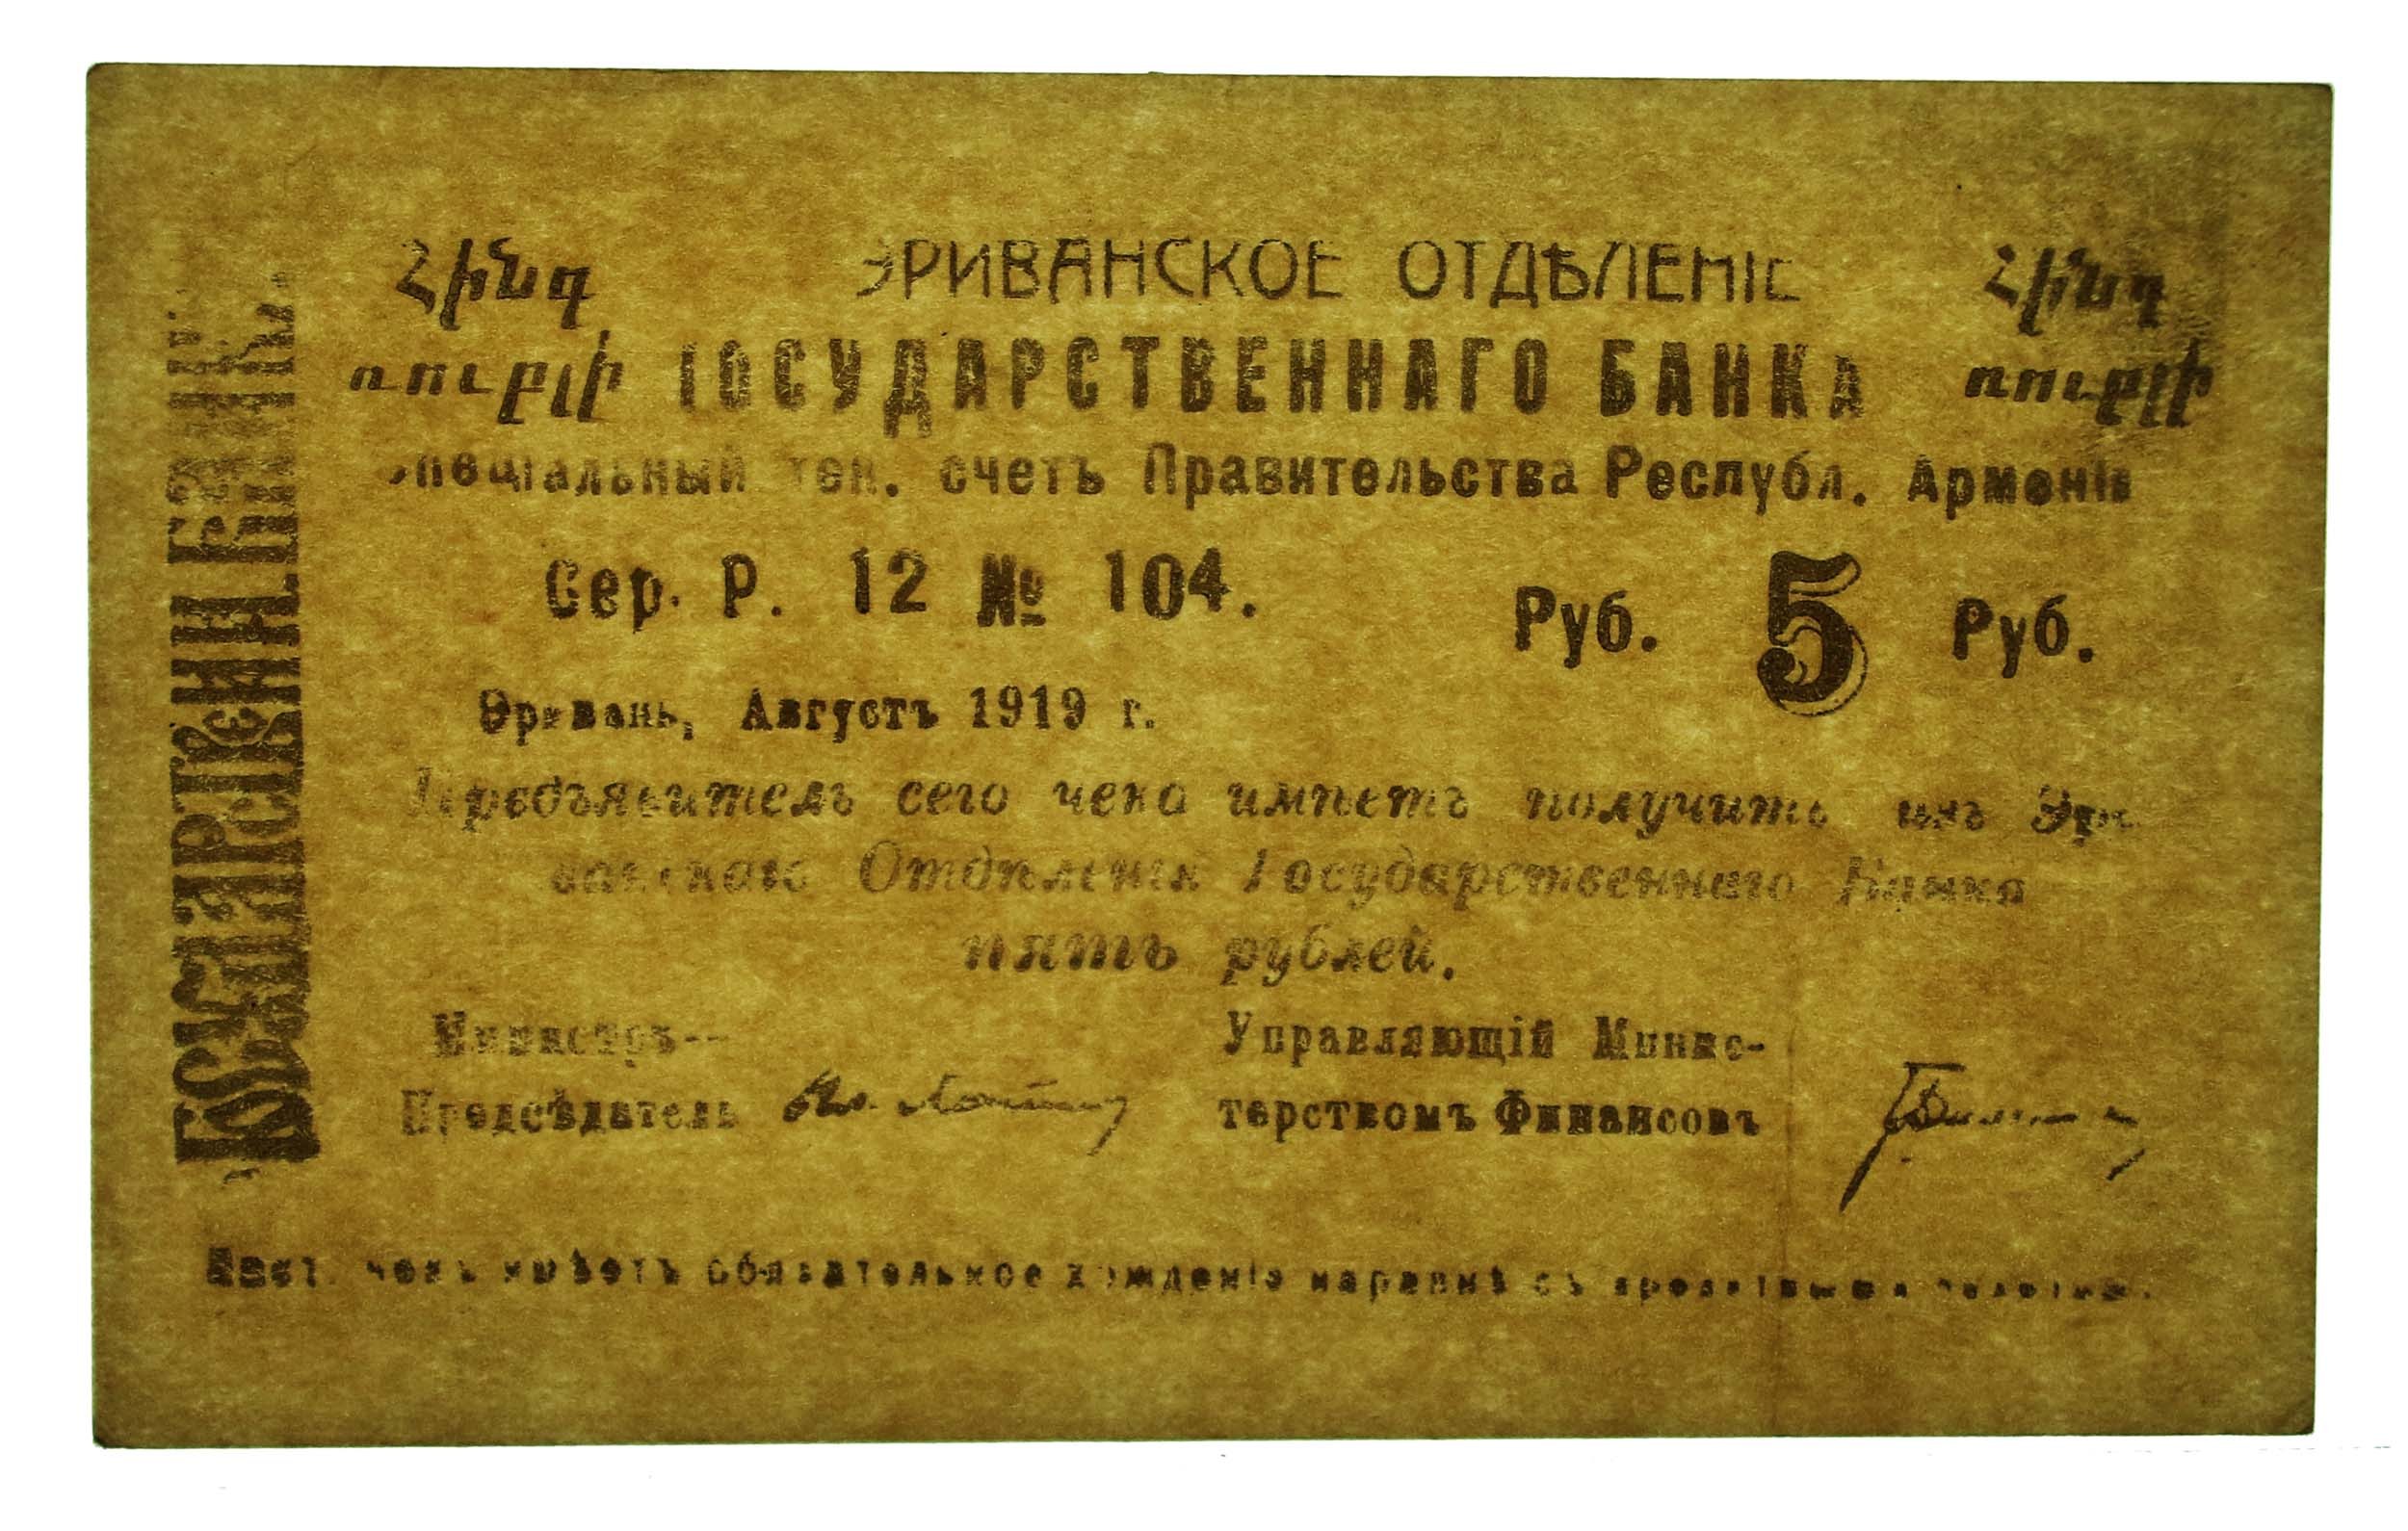 Հինգ
ռուբլի
ЭРИВАНСКОЕ ОТДѢЛЕНІЕ
ГОСУДАРСТВЕННАГО БАНКА
Հինգ
ռուբլի
Спеціальный тек. счетъ Правительства Республ. Арменіи
Сер. Р. 12 № 104.
Руб. 5 Руб.
Эривань, Августъ 1919 г.
Предъявитель сего чека имѣетъ получить изъ Эри-
ванскаго Отдѣленія Государственнаго Банка
пять рублей.
Министръ-
Предсѣдатель
Управляющій Минис-
терствомъ Финансовъ
Наст. чекъ имѣетъ обязательное хожденіе наравнѣ съ кредитными билетами.